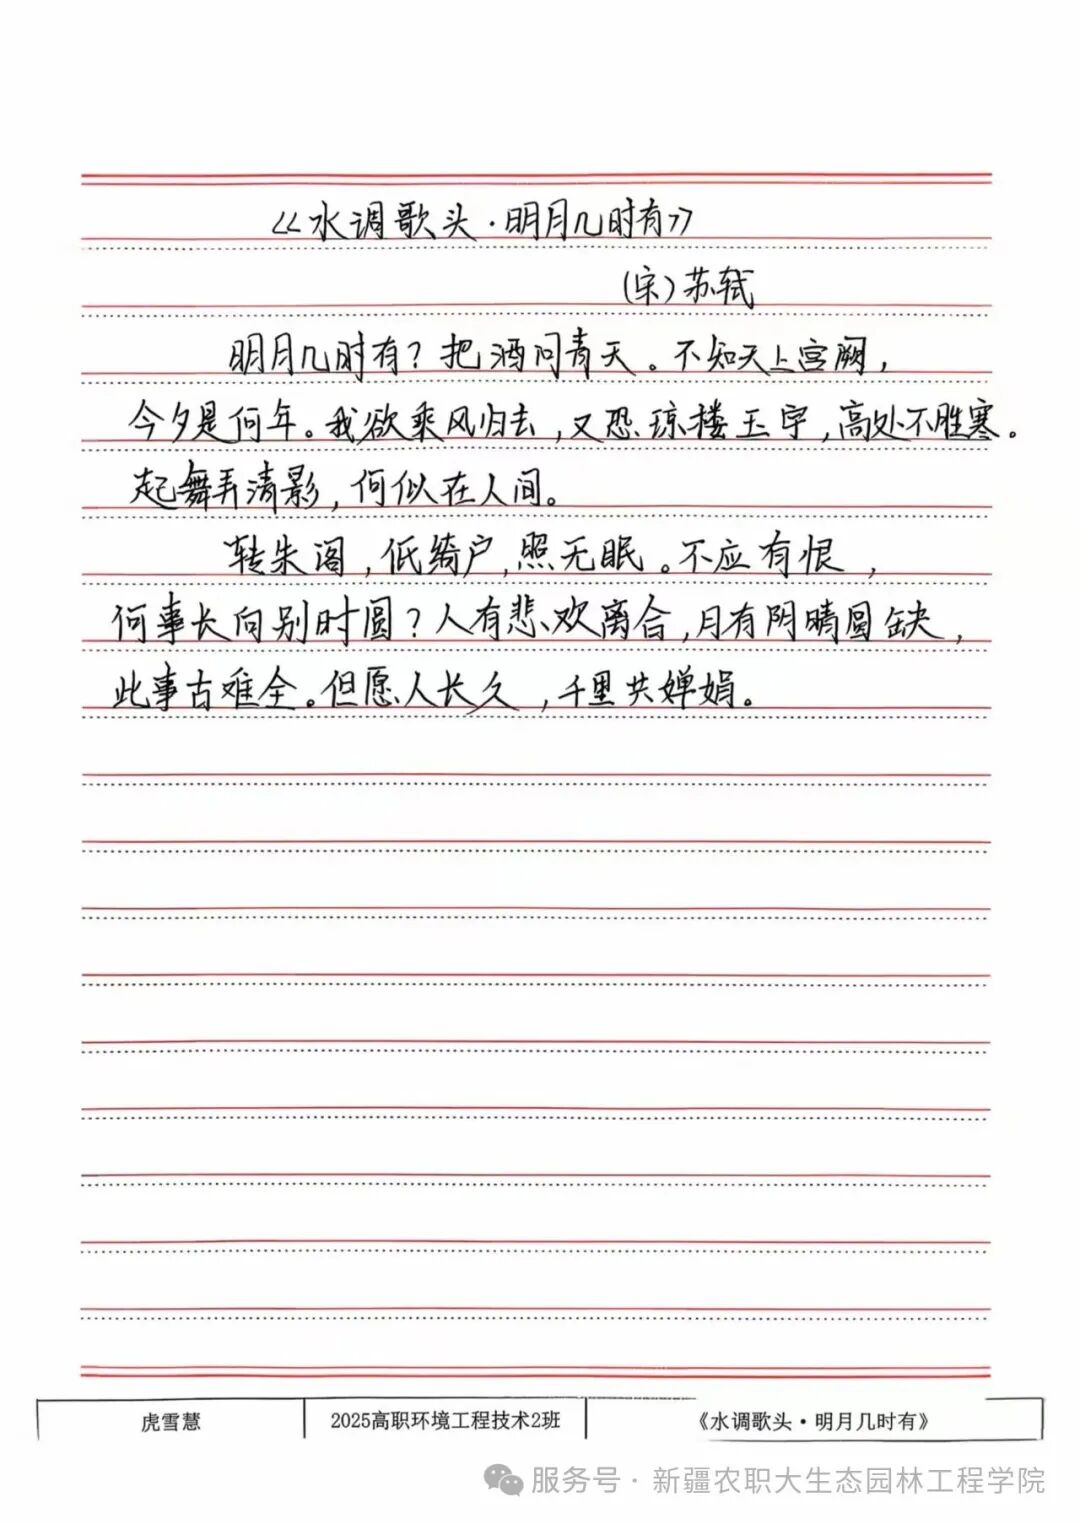 《水调歌头·明月几时有》
(宋)苏轼
明月几时有？把酒问青天。不知天上宫阙，
今夕是何年。我欲乘风归去，又恐琼楼玉宇，高处不胜寒。
起舞弄清影，何似在人间。
转朱阁，低绮户，照无眠。不应有恨，
何事长向别时圆？人有悲欢离合，月有阴晴圆缺，
此事古难全。但愿人长久，千里共婵娟。
虎雪慧
2025高职环境工程技术2班
《水调歌头·明月几时有》
服务号·新疆农职大生态园林工程学院